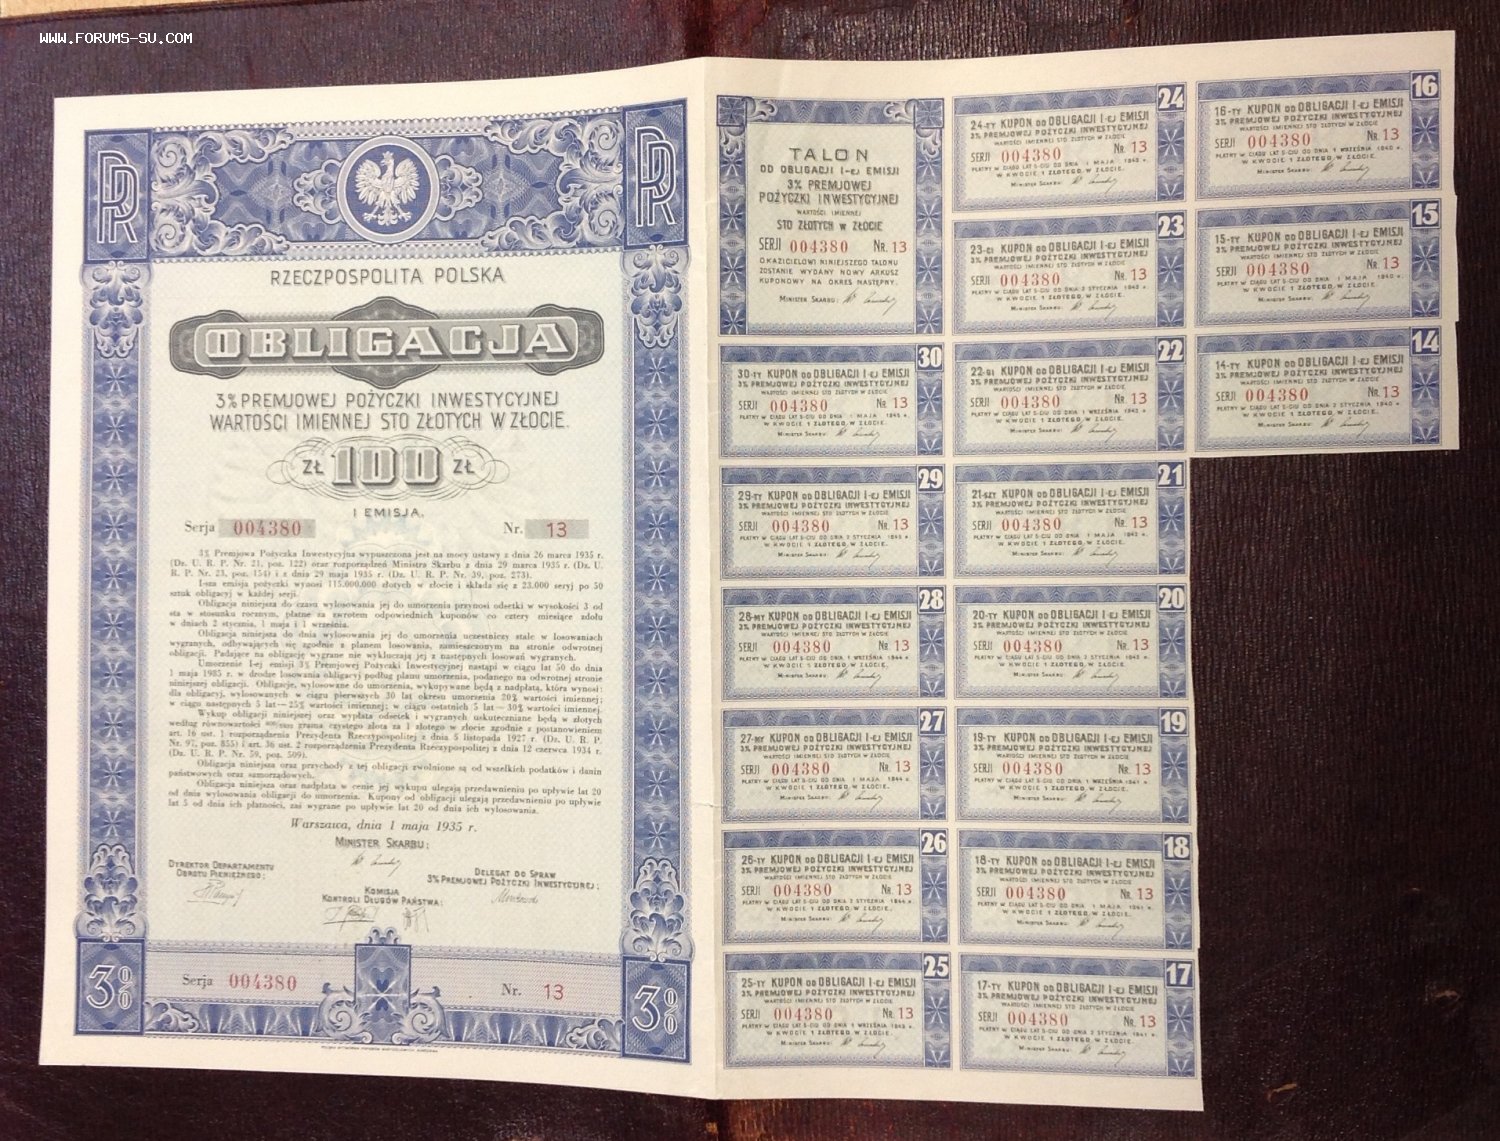 WWW.FORUMS-SU.COM
RP
RP
RZECZPOSPOLITA POLSKA
OBLIGACJA
3% PREMJOWEJ POŻYCZKI INWESTYCYJNEJ
WARTOŚCI IMIENNEJ STO ZŁOTYCH W ZŁOCIE.
ZŁ 100 ZŁ
I EMISJA.
Serja 004380 Nr. 13
3% Premjowa Pożyczka Inwestycyjna wypuszczona jest na mocy ustawy z dnia 26 marca 1935 r.
(Dz. U. R. P. Nr. 21, poz. 122) oraz rozporządzeń Ministra Skarbu z dnia 29 marca 1935 r. (Dz. U.
R. P. Nr. 23, poz. 154) i z dnia 29 maja 1935 r. (Dz. U. R. P. Nr. 39, poz. 273).
I-sza emisja pożyczki wynosi 115.000.000 złotych w złocie i składa się z 23.000 seryj po 50
sztuk obligacyj w każdej serji.
Obligacja niniejsza do czasu wylosowania jej do umorzenia przynosi odsetki w wysokości 3 od
sta w stosunku rocznym, płatne za zwrotem odpowiednich kuponów co cztery miesiące zdołu
w dniach 2 stycznia, 1 maja i 1 września.
Obligacja niniejsza do dnia wylosowania jej do umorzenia uczestniczy stale w losowaniach
wygranych, odbywających się zgodnie z planem losowania, zamieszczonym na stronie odwrotnej
obligacji. Padające na obligację wygrane nie wykluczają jej z następnych losowań wygranych.
Umorzenie I-ej emisji 3% Premjowej Pożyczki Inwestycyjnej nastąpi w ciągu lat 50 do dnia
1 maja 1985 r. w drodze losowania obligacyj podług planu umorzenia, podanego na odwrotnej stronie
niniejszej obligacji. Obligacje, wylosowane do umorzenia, wykupywane będą z nadpłatą, która wynosi:
dla obligacyj, wylosowanych w ciągu pierwszych 30 lat okresu umorzenia 20% wartości imiennej;
w ciągu następnych 5 lat — 25% wartości imiennej; w ciągu ostatnich 5 lat — 30% wartości imiennej.
Wykup obligacji niniejszej oraz wypłata odsetek i wygranych uskuteczniane będą w złotych
według równowartości grama czystego złota za 1 złotego w złocie zgodnie z postanowieniem
art. 16 ust. 1 rozporządzenia Prezydenta Rzeczypospolitej z dnia 5 listopada 1927 r. (Dz. U. R. P.
Nr. 97, poz. 855) i art. 36 ust. 2 rozporządzenia Prezydenta Rzeczypospolitej z dnia 12 czerwca 1934 r.
(Dz. U. R. P. Nr. 59, poz. 509).
Obligacja niniejsza oraz przychody z tej obligacji zwolnione są od wszelkich podatków i danin
państwowych oraz samorządowych.
Obligacja niniejsza oraz nadpłata w cenie jej wykupu ulegają przedawnieniu po upływie lat 20
od dnia wylosowania obligacji do umorzenia. Kupony od obligacji ulegają przedawnieniu po upływie
lat 5 od dnia ich płatności, zaś wygrane po upływie lat 20 od dnia ich wylosowania.
Warszawa, dnia 1 maja 1935 r.
MINISTER SKARBU:
DYREKTOR DEPARTAMENTU
OBROTU PIENIĘŻNEGO:
KOMISJA
KONTROLI DŁUGÓW PAŃSTWA:
DELEGAT DO SPRAW
3% PREMJOWEJ POŻYCZKI INWESTYCYJNEJ:
3%
Serja 004380 Nr. 13
3%
TALON
OD OBLIGACJI I-EJ EMISJI
3% PREMJOWEJ
POŻYCZKI INWESTYCYJNEJ
WARTOŚCI IMIENNEJ
STO ZŁOTYCH W ZŁOCIE
SERJI 004380 NR. 13
OKAZICIELOWI NINIEJSZEGO TALONU
ZOSTANIE WYDANY NOWY ARKUSZ
KUPONOWY NA OKRES NASTĘPNY.
MINISTER SKARBU:
30
30-TY KUPON OD OBLIGACJI I-EJ EMISJI
3% PREMJOWEJ POŻYCZKI INWESTYCYJNEJ
WARTOŚCI IMIENNEJ STO ZŁOTYCH W ZŁOCIE
SERJI 004380 NR. 13
PŁATNY W CIĄGU LAT 5-CIU OD DNIA 1 MAJA 1945 R.
W KWOCIE 1 ZŁOTEGO W ZŁOCIE.
MINISTER SKARBU:
29
29-TY KUPON OD OBLIGACJI I-EJ EMISJI
3% PREMJOWEJ POŻYCZKI INWESTYCYJNEJ
WARTOŚCI IMIENNEJ STO ZŁOTYCH W ZŁOCIE
SERJI 004380 NR. 13
PŁATNY W CIĄGU LAT 5-CIU OD DNIA 2 STYCZNIA 1945 R.
W KWOCIE 1 ZŁOTEGO W ZŁOCIE.
MINISTER SKARBU:
28
28-MY KUPON OD OBLIGACJI I-EJ EMISJI
3% PREMJOWEJ POŻYCZKI INWESTYCYJNEJ
WARTOŚCI IMIENNEJ STO ZŁOTYCH W ZŁOCIE
SERJI 004380 NR. 13
PŁATNY W CIĄGU LAT 5-CIU OD DNIA 1 WRZEŚNIA 1944 R.
W KWOCIE 1 ZŁOTEGO W ZŁOCIE.
MINISTER SKARBU:
27
27-MY KUPON OD OBLIGACJI I-EJ EMISJI
3% PREMJOWEJ POŻYCZKI INWESTYCYJNEJ
WARTOŚCI IMIENNEJ STO ZŁOTYCH W ZŁOCIE
SERJI 004380 NR. 13
PŁATNY W CIĄGU LAT 5-CIU OD DNIA 1 MAJA 1944 R.
W KWOCIE 1 ZŁOTEGO W ZŁOCIE.
MINISTER SKARBU:
26
26-TY KUPON OD OBLIGACJI I-EJ EMISJI
3% PREMJOWEJ POŻYCZKI INWESTYCYJNEJ
WARTOŚCI IMIENNEJ STO ZŁOTYCH W ZŁOCIE
SERJI 004380 NR. 13
PŁATNY W CIĄGU LAT 5-CIU OD DNIA 2 STYCZNIA 1944 R.
W KWOCIE 1 ZŁOTEGO W ZŁOCIE.
MINISTER SKARBU:
25
25-TY KUPON OD OBLIGACJI I-EJ EMISJI
3% PREMJOWEJ POŻYCZKI INWESTYCYJNEJ
WARTOŚCI IMIENNEJ STO ZŁOTYCH W ZŁOCIE
SERJI 004380 NR. 13
PŁATNY W CIĄGU LAT 5-CIU OD DNIA 1 WRZEŚNIA 1943 R.
W KWOCIE 1 ZŁOTEGO W ZŁOCIE.
MINISTER SKARBU:
24
24-TY KUPON OD OBLIGACJI I-EJ EMISJI
3% PREMJOWEJ POŻYCZKI INWESTYCYJNEJ
WARTOŚCI IMIENNEJ STO ZŁOTYCH W ZŁOCIE
SERJI 004380 NR. 13
PŁATNY W CIĄGU LAT 5-CIU OD DNIA 1 MAJA 1943 R.
W KWOCIE 1 ZŁOTEGO W ZŁOCIE.
MINISTER SKARBU:
23
23-CI KUPON OD OBLIGACJI I-EJ EMISJI
3% PREMJOWEJ POŻYCZKI INWESTYCYJNEJ
WARTOŚCI IMIENNEJ STO ZŁOTYCH W ZŁOCIE
SERJI 004380 NR. 13
PŁATNY W CIĄGU LAT 5-CIU OD DNIA 2 STYCZNIA 1943 R.
W KWOCIE 1 ZŁOTEGO W ZŁOCIE.
MINISTER SKARBU:
22
22-GI KUPON OD OBLIGACJI I-EJ EMISJI
3% PREMJOWEJ POŻYCZKI INWESTYCYJNEJ
WARTOŚCI IMIENNEJ STO ZŁOTYCH W ZŁOCIE
SERJI 004380 NR. 13
PŁATNY W CIĄGU LAT 5-CIU OD DNIA 1 WRZEŚNIA 1942 R.
W KWOCIE 1 ZŁOTEGO W ZŁOCIE.
MINISTER SKARBU:
21
21-SZY KUPON OD OBLIGACJI I-EJ EMISJI
3% PREMJOWEJ POŻYCZKI INWESTYCYJNEJ
WARTOŚCI IMIENNEJ STO ZŁOTYCH W ZŁOCIE
SERJI 004380 NR. 13
PŁATNY W CIĄGU LAT 5-CIU OD DNIA 1 MAJA 1942 R.
W KWOCIE 1 ZŁOTEGO W ZŁOCIE.
MINISTER SKARBU:
20
20-TY KUPON OD OBLIGACJI I-EJ EMISJI
3% PREMJOWEJ POŻYCZKI INWESTYCYJNEJ
WARTOŚCI IMIENNEJ STO ZŁOTYCH W ZŁOCIE
SERJI 004380 NR. 13
PŁATNY W CIĄGU LAT 5-CIU OD DNIA 2 STYCZNIA 1942 R.
W KWOCIE 1 ZŁOTEGO W ZŁOCIE.
MINISTER SKARBU:
19
19-TY KUPON OD OBLIGACJI I-EJ EMISJI
3% PREMJOWEJ POŻYCZKI INWESTYCYJNEJ
WARTOŚCI IMIENNEJ STO ZŁOTYCH W ZŁOCIE
SERJI 004380 NR. 13
PŁATNY W CIĄGU LAT 5-CIU OD DNIA 1 WRZEŚNIA 1941 R.
W KWOCIE 1 ZŁOTEGO W ZŁOCIE.
MINISTER SKARBU:
18
18-TY KUPON OD OBLIGACJI I-EJ EMISJI
3% PREMJOWEJ POŻYCZKI INWESTYCYJNEJ
WARTOŚCI IMIENNEJ STO ZŁOTYCH W ZŁOCIE
SERJI 004380 NR. 13
PŁATNY W CIĄGU LAT 5-CIU OD DNIA 1 MAJA 1941 R.
W KWOCIE 1 ZŁOTEGO W ZŁOCIE.
MINISTER SKARBU:
17
17-TY KUPON OD OBLIGACJI I-EJ EMISJI
3% PREMJOWEJ POŻYCZKI INWESTYCYJNEJ
WARTOŚCI IMIENNEJ STO ZŁOTYCH W ZŁOCIE
SERJI 004380 NR. 13
PŁATNY W CIĄGU LAT 5-CIU OD DNIA 2 STYCZNIA 1941 R.
W KWOCIE 1 ZŁOTEGO W ZŁOCIE.
MINISTER SKARBU:
16
16-TY KUPON OD OBLIGACJI I-EJ EMISJI
3% PREMJOWEJ POŻYCZKI INWESTYCYJNEJ
WARTOŚCI IMIENNEJ STO ZŁOTYCH W ZŁOCIE
SERJI 004380 NR. 13
PŁATNY W CIĄGU LAT 5-CIU OD DNIA 1 WRZEŚNIA 1940 R.
W KWOCIE 1 ZŁOTEGO W ZŁOCIE.
MINISTER SKARBU:
15
15-TY KUPON OD OBLIGACJI I-EJ EMISJI
3% PREMJOWEJ POŻYCZKI INWESTYCYJNEJ
WARTOŚCI IMIENNEJ STO ZŁOTYCH W ZŁOCIE
SERJI 004380 NR. 13
PŁATNY W CIĄGU LAT 5-CIU OD DNIA 1 MAJA 1940 R.
W KWOCIE 1 ZŁOTEGO W ZŁOCIE.
MINISTER SKARBU:
14
14-TY KUPON OD OBLIGACJI I-EJ EMISJI
3% PREMJOWEJ POŻYCZKI INWESTYCYJNEJ
WARTOŚCI IMIENNEJ STO ZŁOTYCH W ZŁOCIE
SERJI 004380 NR. 13
PŁATNY W CIĄGU LAT 5-CIU OD DNIA 2 STYCZNIA 1940 R.
W KWOCIE 1 ZŁOTEGO W ZŁOCIE.
MINISTER SKARBU: